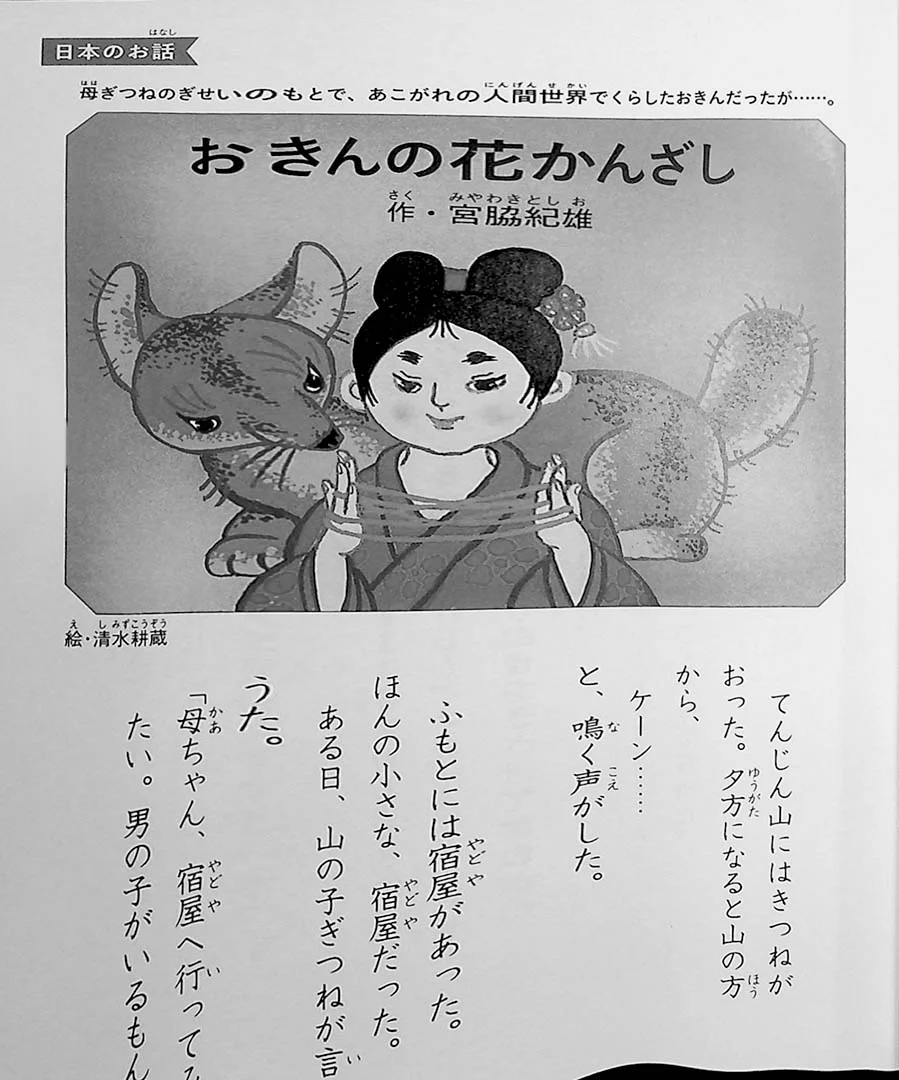 日本のお話
母ぎつねのぎせいのもとで、あこがれの人間世界でくらしたおきんだったが……。
おきんの花かんざし
作・宮脇紀雄
絵・清水耕蔵
てんじん山にはきつねが
おった。夕方になると山の方
から、
ケーン……
と、鳴く声がした。
ふもとには宿屋があった。
ほんの小さな、宿屋だった。
ある日、山の子ぎつねが言
うた。
「母ちゃん、宿屋へ行ってみ
たい。男の子がいるもん